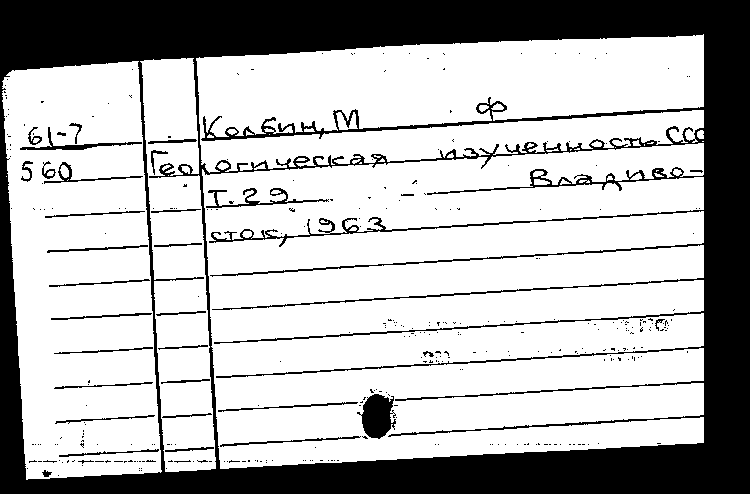 61-7 Колбин, М Ф
560 Геологическая изученность ССС
Т. 29. - Владиво-
сток, 1963